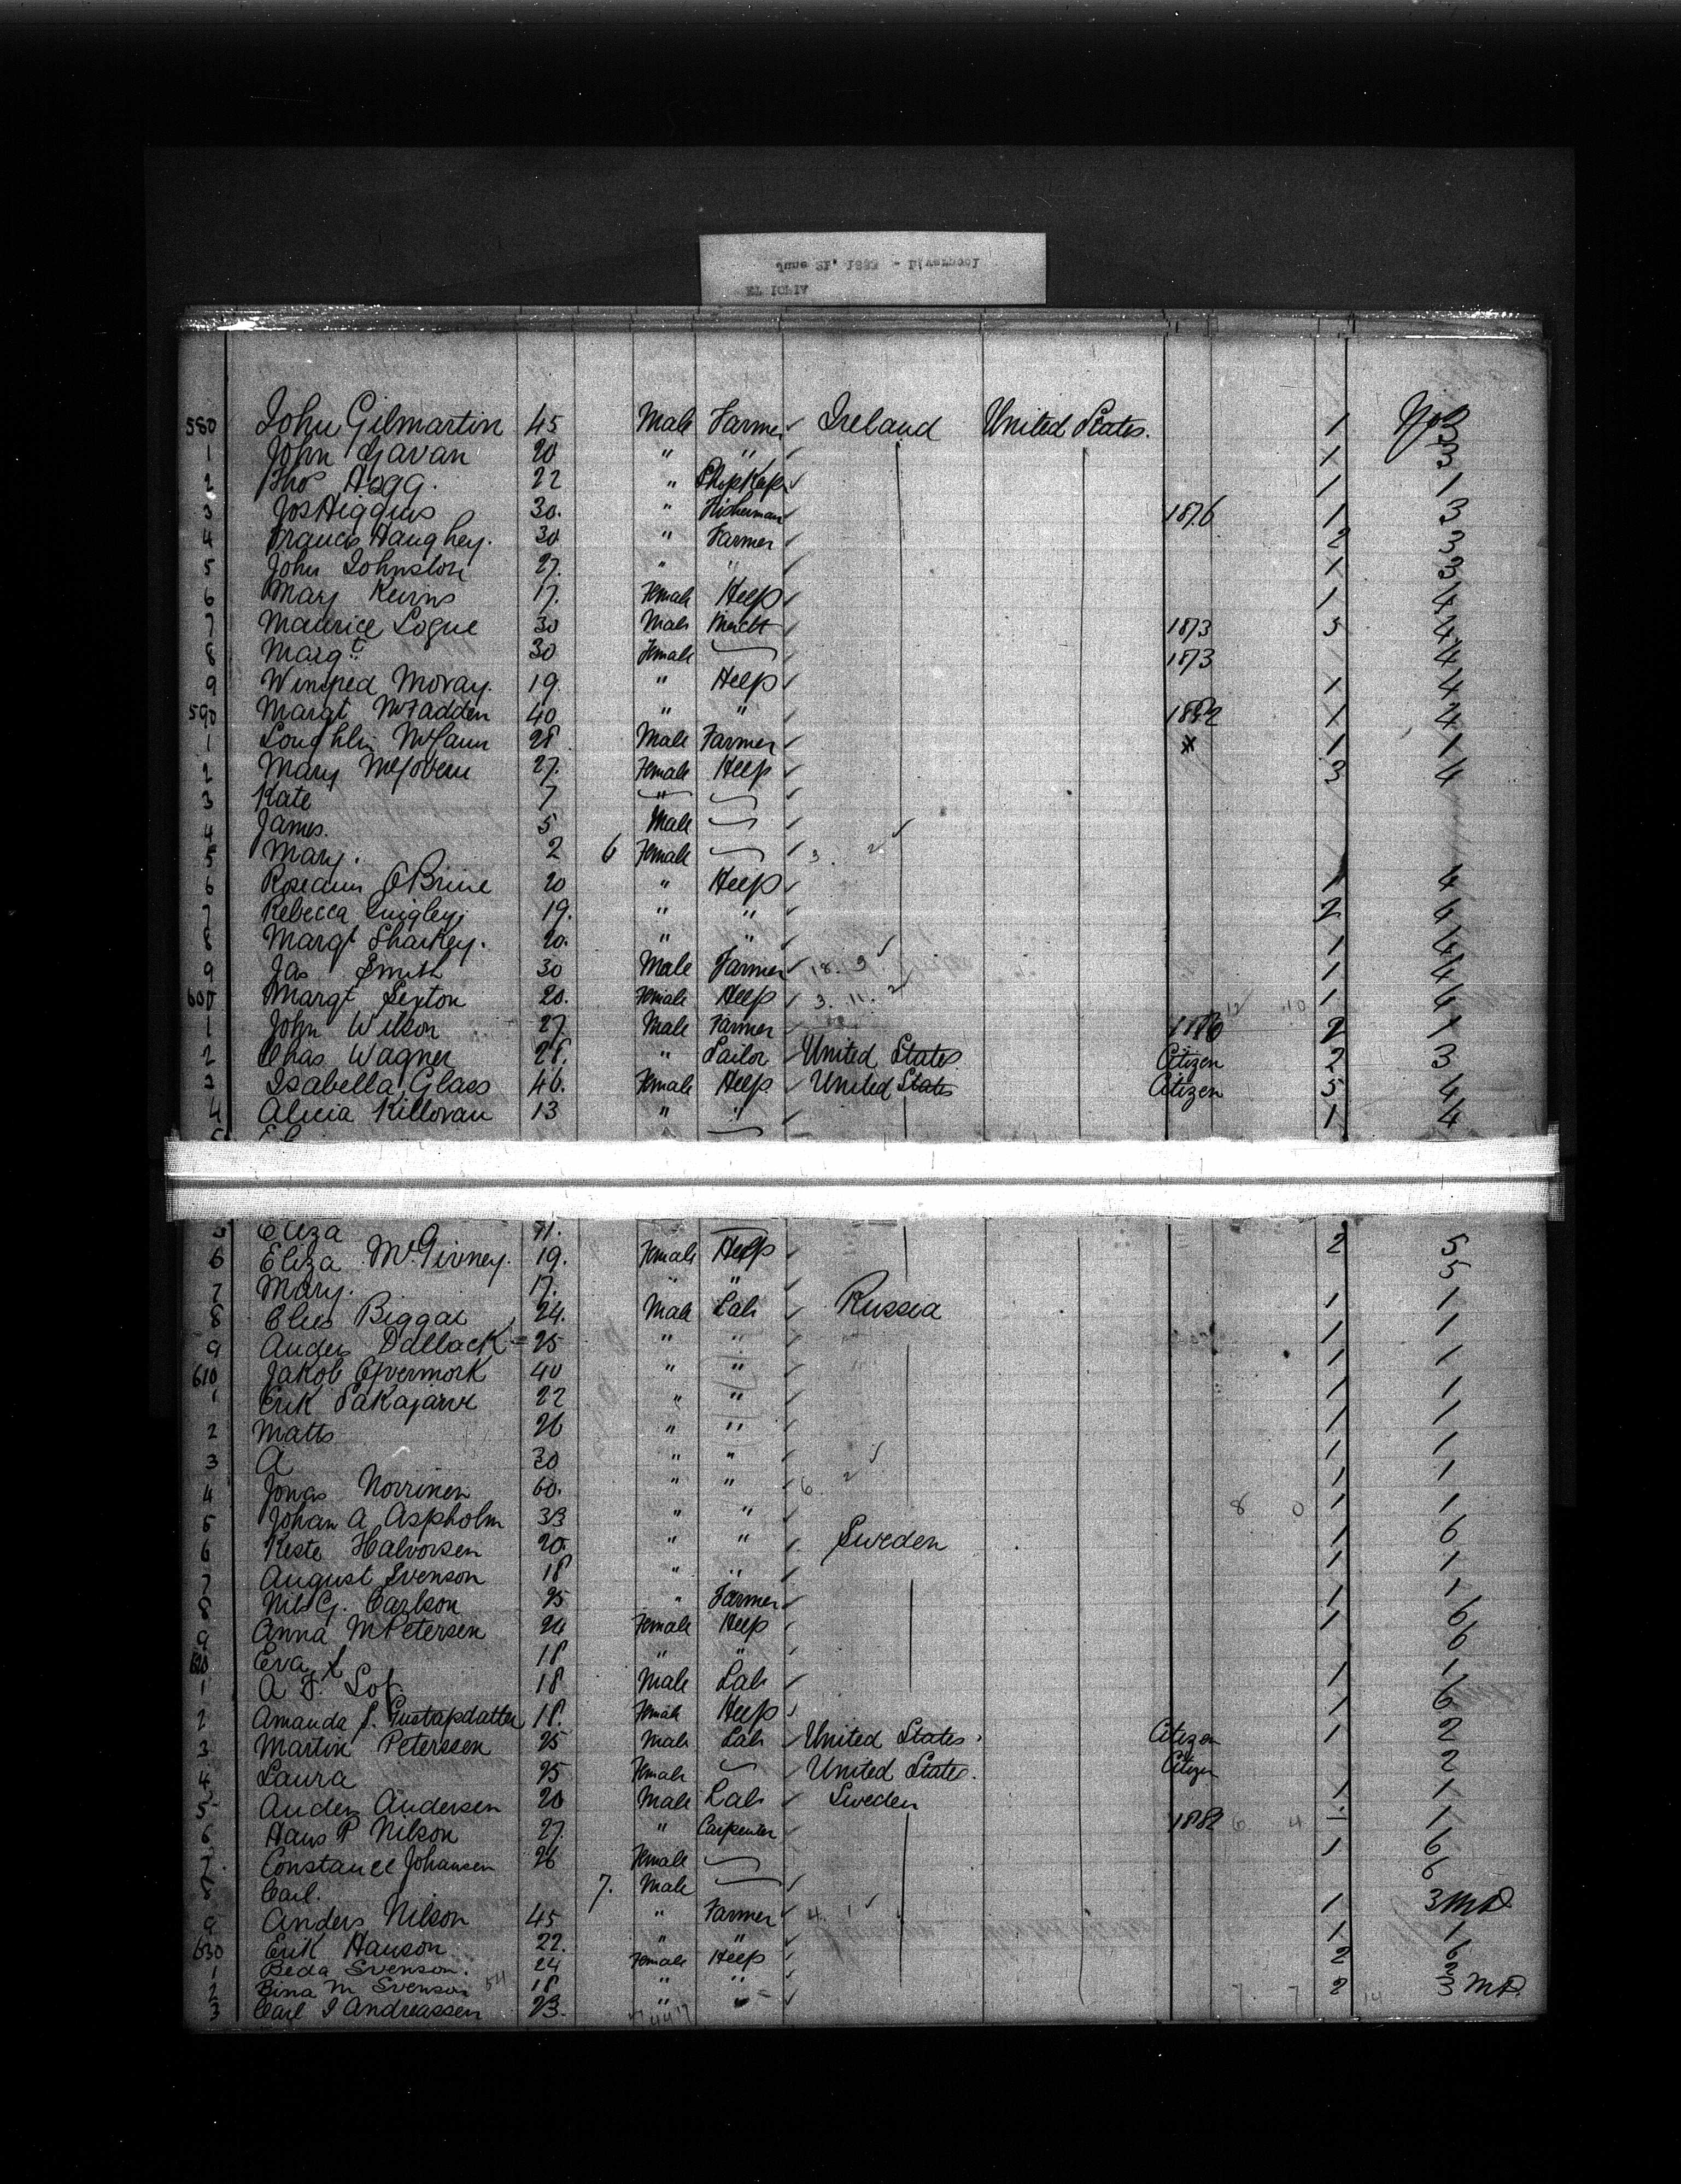 580 John Gilmartin 45 Male Farmer Ireland United States. 1 No 1
1 John Gavan 20 " " 1
2 Thos Hogg. 22 " ShopKepr 1 1
3 Jos Higgins 30. " Fisherman 1876 1 3
4 Francis Haughey. 30 " Farmer 2 3
5 John Johnston 27. " " 1 3
6 Mary Keirns 17. Female Help 1 4
7 Maurice Logue 30 Male Mercht 1873 5 4
8 Margt 30 Female 1873 4
9 Winifred Moray. 19. " Help 1 4
590 Margt McFadden 40 " " 1882 1 4
1 Loughlin McGann 28 Male Farmer 1 1
2 Mary McGovern 27. Female Help 3 4
3 Kate 7 "
4 James. 5 Male
5 Mary. 2 6 Female
6 Roseann O'Brine 20 " Help 1 4
7 Rebecca Quigley. 19. " " 2 4
8 Margt Sharkey. 20. " " 1 4
9 Jas Smith 30 Male Farmer 1 4
600 Margt Sexton 20. Female Help 1 4
1 John Wilson 27 Male Farmer 2 1
2 Chas Wagner 28. " Sailor United States Citizen 2 3
3 Isabella Glass 46. Female Help. United States Citizen 5 4
4 Alicia Killovan 13 " " 1 4
5 Eliza 11.
6 Eliza McGivney. 19. Female Help 2 5
7 Mary. 17. " " 5
8 Elies Biggar 24. Male Lab Russia 1 1
9 Anders Dallack 25 " " 1 1
610 Jakob Ofvermork 40 " " 1 1
1 Erik Sakajarvi 22 " " 1 1
2 Matts 26 " " 1 1
3 A 30 " " 1 1
4 Jonas Norrinen 60. " " 1 1
5 Johan A Aspholm 33 " " 1 1
6 Keste Halvorsen 20. " " Sweden 1 6
7 August Svenson 18 " " 1 1
8 Nils G. Carlson 25 " Farmer 1 1
9 Anna M Petersen 24 Female Help 1 6
620 Eva 18 " " 6
1 A F. Lof 18 Male Lab 1 1
2 Amanda S. Gustafsdatter 18. Female Help 1 6
3 Martin Peterssen 25 Male Lab United States. Citizen 1 2
4 Laura 25 Female United States. Citizen 2
5 Anders Andersen 20 Male Lab Sweden 1 1
6 Hans P Nilson 27. " Carpenter 1882 1
7 Constance Johansen 26 Female 1 6
8 Carl. 7. Male 6
9 Anders Nilson 45 " Farmer 1 3 MD
630 Erik Hanson 22. " " 1 1
1 Beda Svenson. 24 Female Help 2 6
2 Bina M Svenson 18 " " 2
3 Carl I Andreassen 23. " " 2 3 MD.